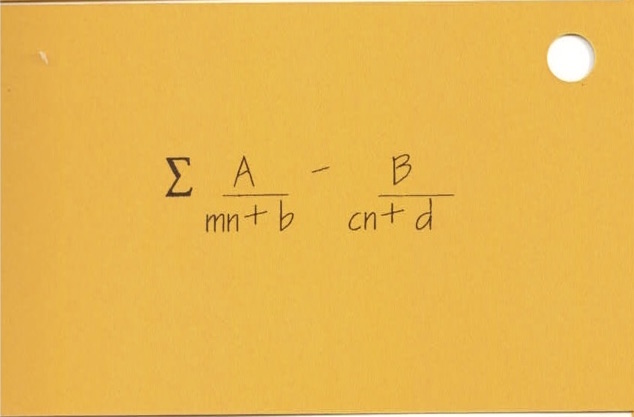 Σ A/(mn+b) - B/(cn+d)